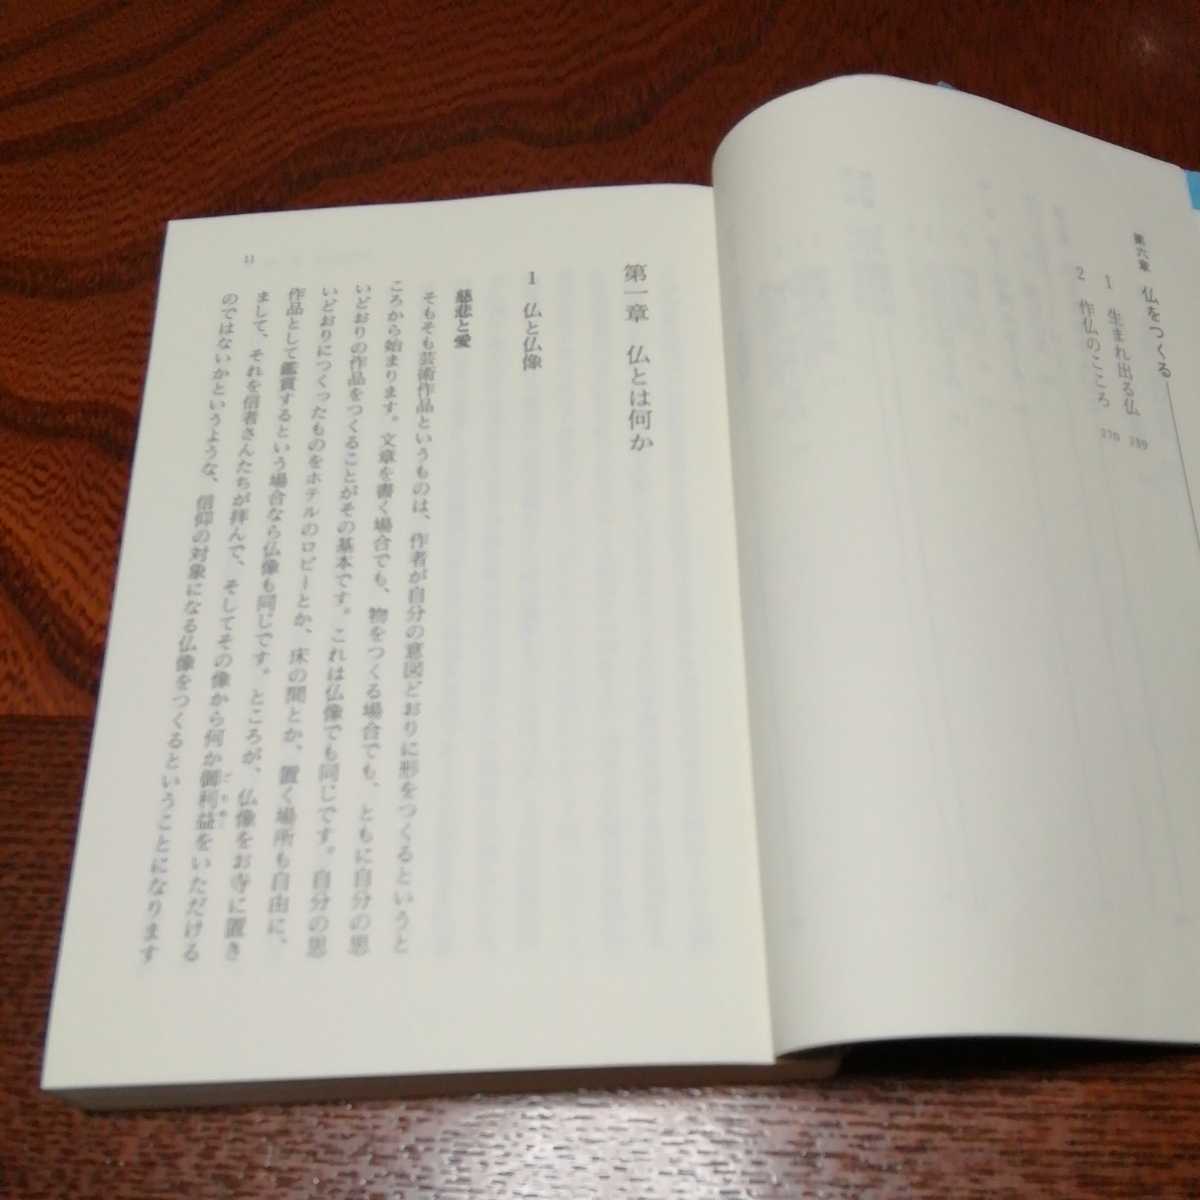 第六章　仏をつくる
1　生まれ出る仏　259
2　作仏のこころ　270
第一章　仏とは何か
1　仏と仏像
慈悲と愛
そもそも芸術作品というものは、作者が自分の意図どおりに形をつくるというと
ころから始まります。文章を書く場合でも、物をつくる場合でも、ともに自分の思
いどおりの作品をつくることがその基本です。これは仏像でも同じです。自分の思
いどおりにつくったものをホテルのロビーとか、床の間とか、置く場所も自由に、
作品として鑑賞するという場合なら仏像も同じです。ところが、仏像をお寺に置き
まして、それを信者さんたちが拝んで、そしてその像から何か御利益をいただける
のではないかというような、信仰の対象になる仏像をつくるということになります
11